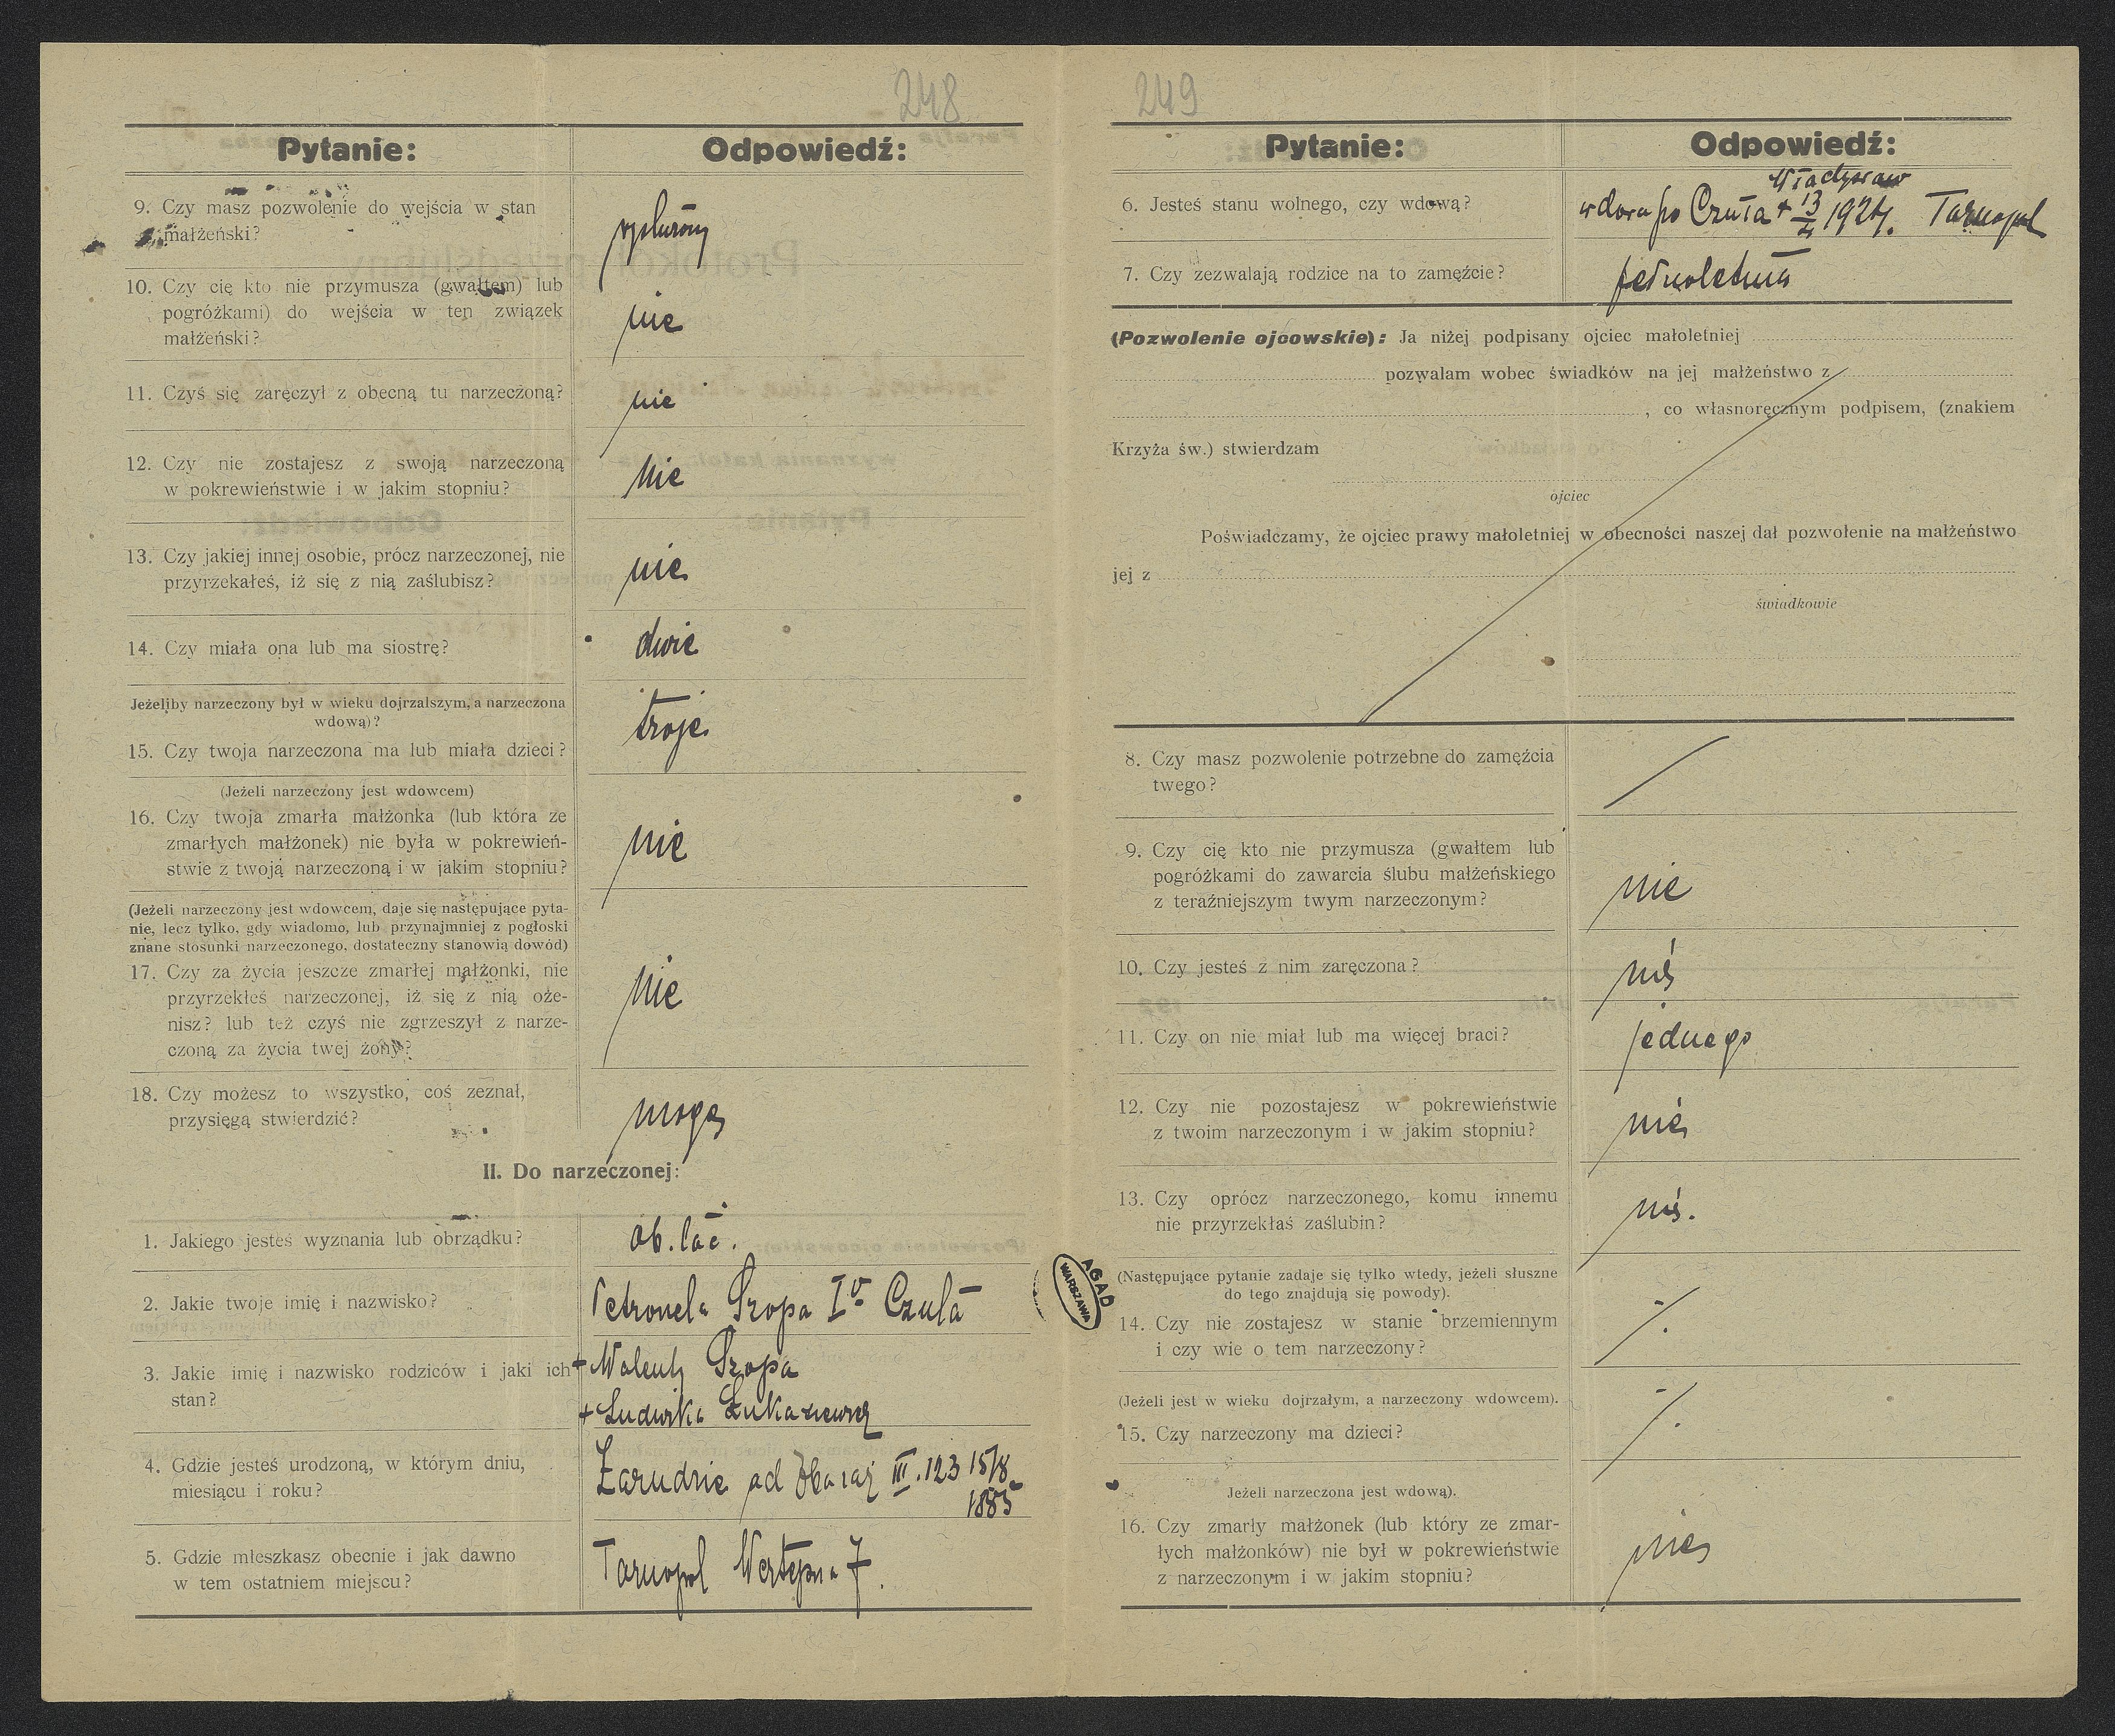 248
Pytanie:
Odpowiedź:
9. Czy masz pozwolenie do wejścia w stan
małżeński?
wysłużony
10. Czy cię kto nie przymusza (gwałtem) lub
pogróżkami) do wejścia w ten związek
małżeński?
nie
11. Czyś się zaręczył z obecną tu narzeczoną?
nie
12. Czy nie zostajesz z swoją narzeczoną
w pokrewieństwie i w jakim stopniu?
nie
13. Czy jakiej innej osobie, prócz narzeczonej, nie
przyrzekałeś, iż się z nią zaślubisz?
nie
14. Czy miała ona lub ma siostrę?
dwie
Jeżeliby narzeczony był w wieku dojrzalszym, a narzeczona
wdową)?
15. Czy twoja narzeczona ma lub miała dzieci?
troje
(Jeżeli narzeczony jest wdowcem)
16. Czy twoja zmarła małżonka (lub która ze
zmarłych małżonek) nie była w pokrewień-
stwie z twoją narzeczoną i w jakim stopniu?
nie
(Jeżeli narzeczony jest wdowcem, daje się następujące pyta-
nie, lecz tylko, gdy wiadomo, lub przynajmniej z pogłoski
znane stosunki narzeczonego, dostateczny stanowią dowód)
17. Czy za życia jeszcze zmarłej małżonki, nie
przyrzekłeś narzeczonej, iż się z nią oże-
nisz? lub też czyś nie zgrzeszył z narze-
czoną za życia twej żony?
nie
18. Czy możesz to wszystko, coś zeznał,
przysięgą stwierdzić?
mogę
II. Do narzeczonej:
1. Jakiego jesteś wyznania lub obrządku?
ob. łać.
2. Jakie twoje imię i nazwisko?
Petronela Szopa Iº Czuła
3. Jakie imię i nazwisko rodziców i jaki ich
stan?
+ Walenty Szopa
+ Ludwika Łukasiewicz
4. Gdzie jesteś urodzoną, w którym dniu,
miesiącu i roku?
Zarudzie ad Zbaraż III. 123 15/8
1885
5. Gdzie mieszkasz obecnie i jak dawno
w tem ostatniem miejscu?
Tarnopol Wertepna 7.
249
Pytanie:
Odpowiedź:
6. Jesteś stanu wolnego, czy wdową?
Władysław
wdowa po Czuła + 13/X 1924. Tarnopol
7. Czy zezwalają rodzice na to zamęźcie?
pełnoletnia
(Pozwolenie ojcowskie): Ja niżej podpisany ojciec małoletniej
pozwalam wobec świadków na jej małżeństwo z
, co własnoręcznym podpisem, (znakiem
Krzyża św.) stwierdzam
ojciec
Poświadczamy, że ojciec prawy małoletniej w obecności naszej dał pozwolenie na małżeństwo
jej z
świadkowie
8. Czy masz pozwolenie potrzebne do zamęźcia
twego?
9. Czy cię kto nie przymusza (gwałtem lub
pogróżkami do zawarcia ślubu małżeńskiego
z teraźniejszym twym narzeczonym?
nie
10. Czy jesteś z nim zaręczona?
nie
11. Czy on nie miał lub ma więcej braci?
jednego
12. Czy nie pozostajesz w pokrewieństwie
z twoim narzeczonym i w jakim stopniu?
nie
13. Czy oprócz narzeczonego, komu innemu
nie przyrzekłaś zaślubin?
nie.
AGAD
WARSZAWA
(Następujące pytanie zadaje się tylko wtedy, jeżeli słuszne
do tego znajdują się powody).
14. Czy nie zostajesz w stanie brzemiennym
i czy wie o tem narzeczony?
(Jeżeli jest w wieku dojrzałym, a narzeczony wdowcem).
15. Czy narzeczony ma dzieci?
Jeżeli narzeczona jest wdową).
16. Czy zmarły małżonek (lub który ze zmar-
łych małżonków) nie był w pokrewieństwie
z narzeczonym i w jakim stopniu?
nie